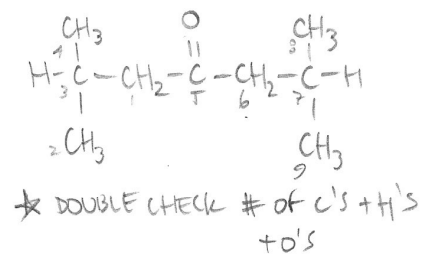 CH3 O CH3
1 || 8
H-C-CH2-C-CH2-C-H
3 5 6 7
2CH3 CH3
9
* DOUBLE CHECK # OF C'S + H'S
+ O'S